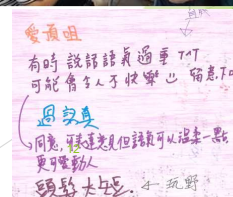 愛頂咀
有時說話語氣過重 TAT
可能會令人不快樂 留意
過認真
同意,可表達意見但語氣可以溫柔一點
更可愛動人
頭髮太長. ← 玩野